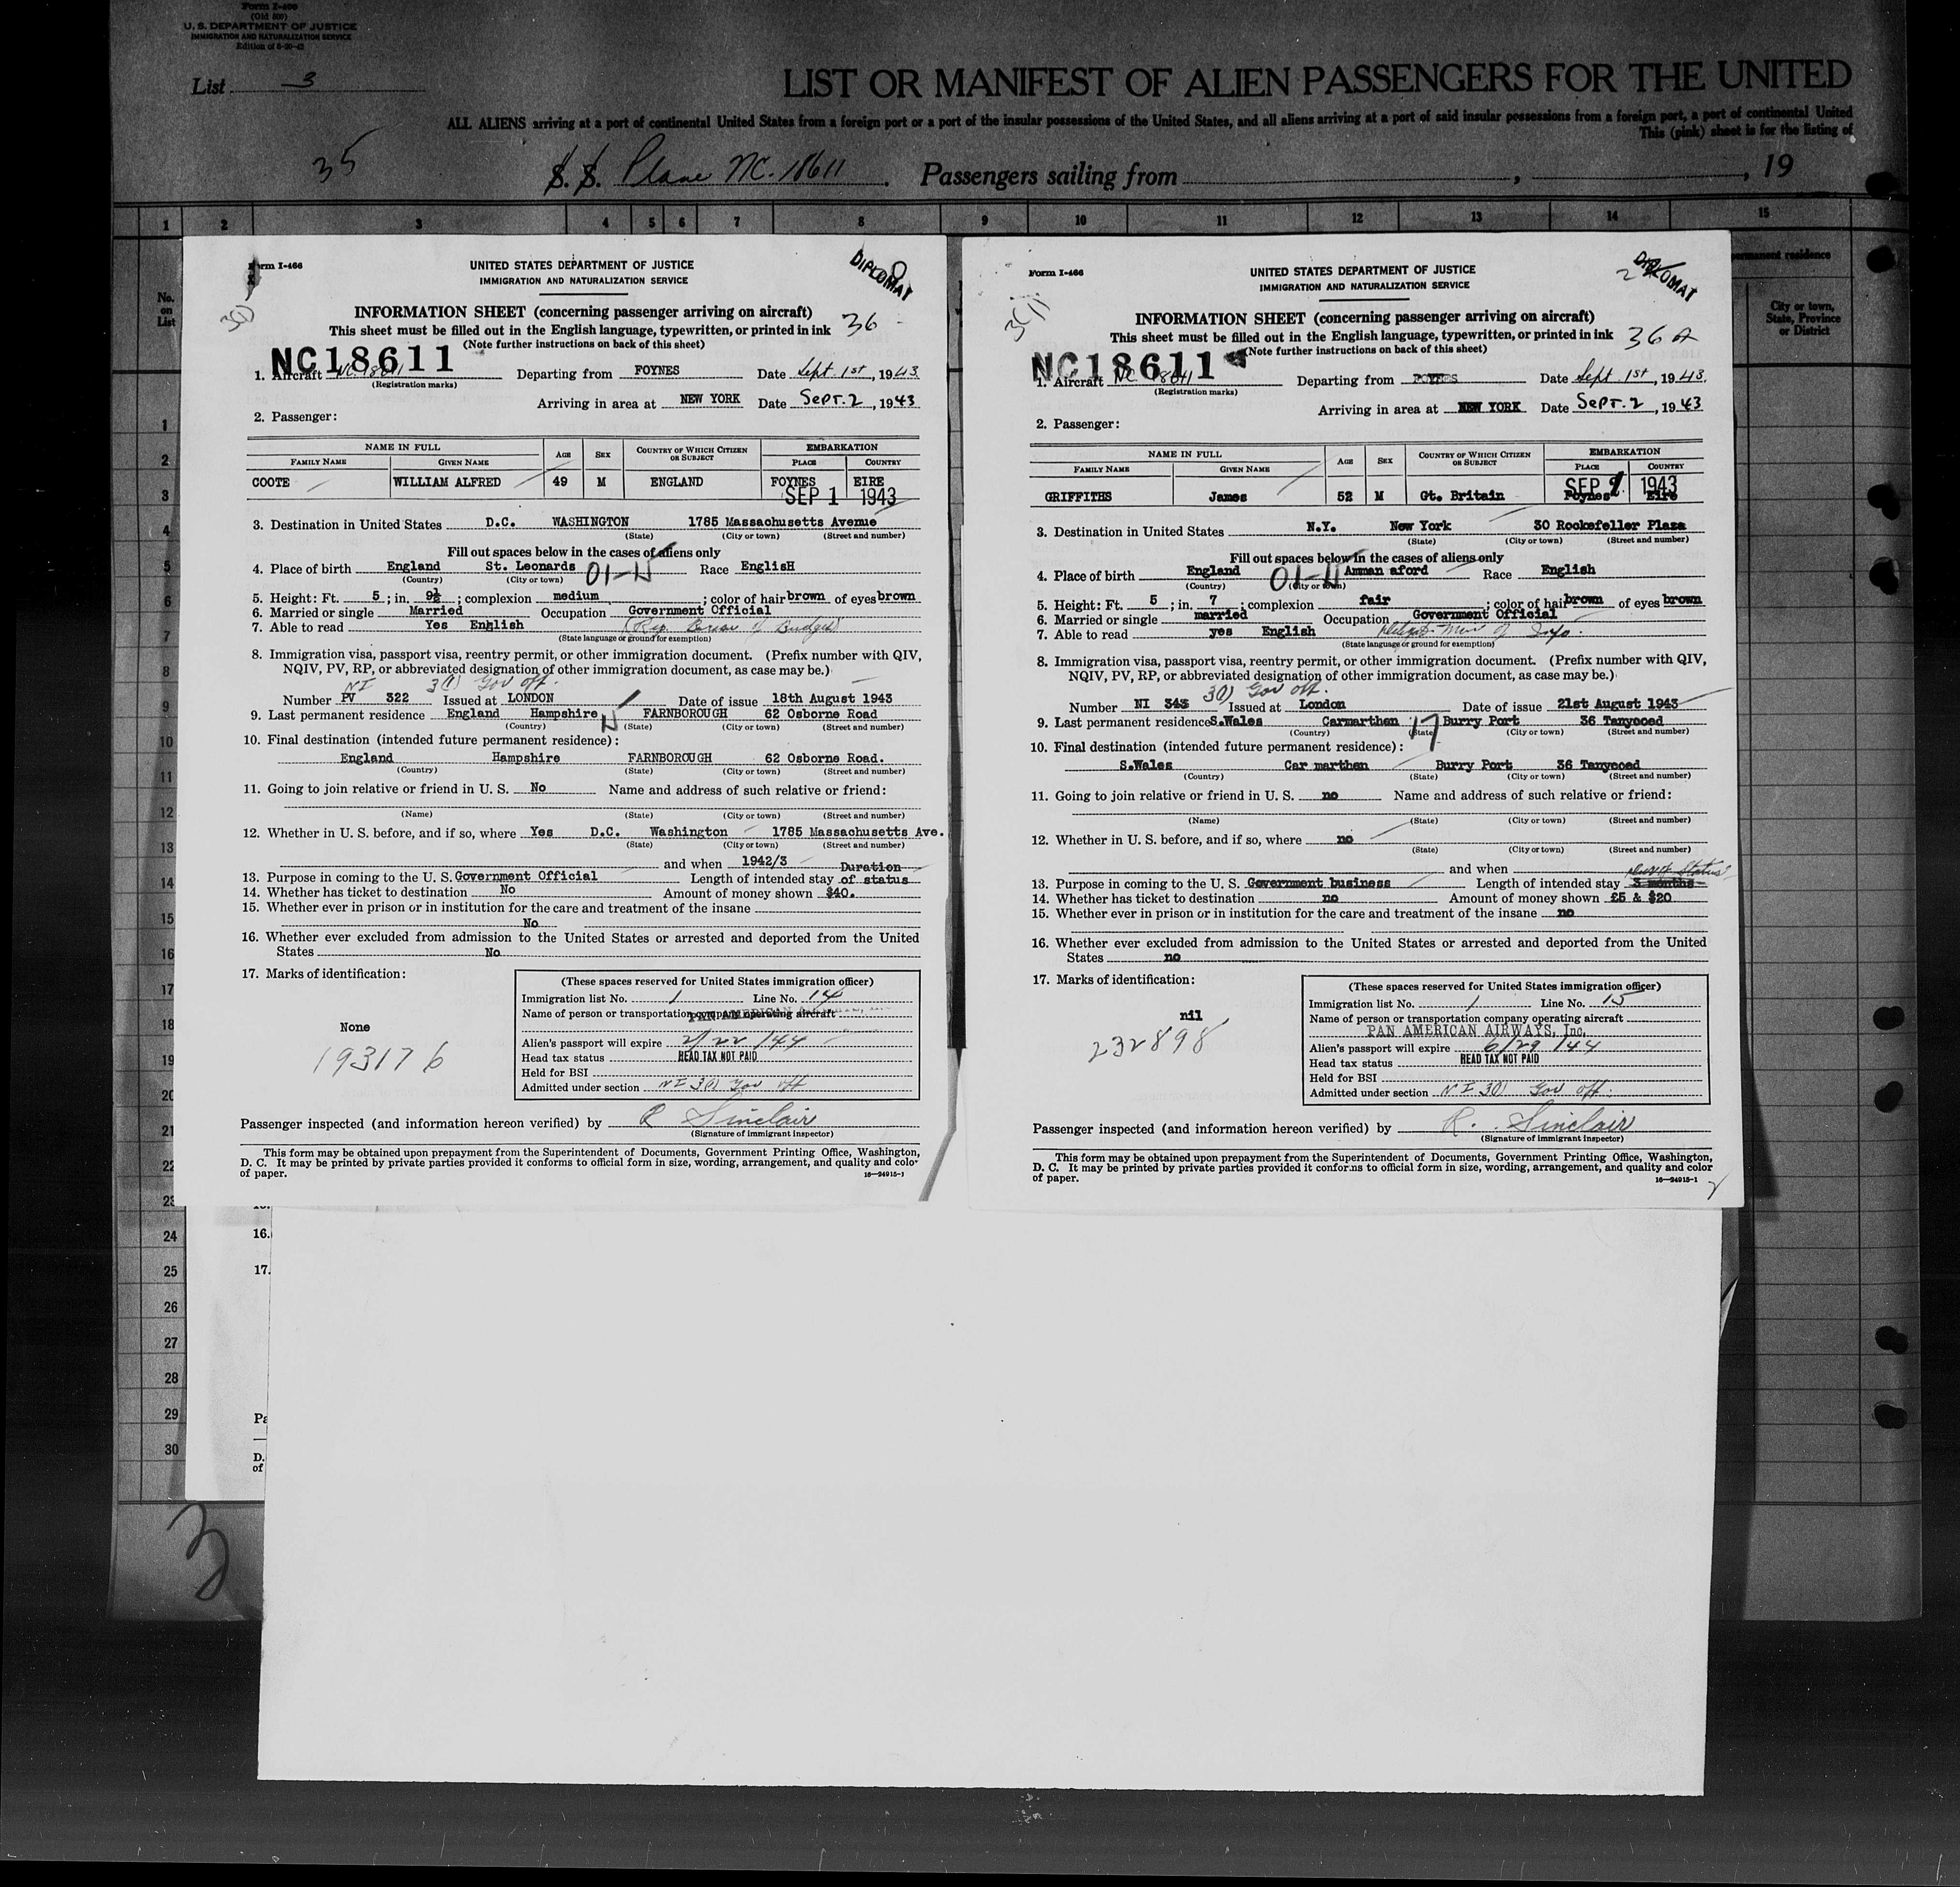 Form I-466
(Old 500)
U. S. DEPARTMENT OF JUSTICE
IMMIGRATION AND NATURALIZATION SERVICE
Edition of 6-20-42
List 3
LIST OR MANIFEST OF ALIEN PASSENGERS FOR THE UNITED
ALL ALIENS arriving at a port of continental United States from a foreign port or a part of the insular possessions of the United States, and all aliens arriving at a port of said insular possessions from a foreign port, a port of continental United
This (pink) sheet is for the listing of
35
S. S. Plane NC. 18611. Passengers sailing from , , 19
1 2 3 4 5 6 7 8 9 10 11 12 13 14 15
No. on List
permanent residence
City or town, State, Province or District
Form I-466
UNITED STATES DEPARTMENT OF JUSTICE
IMMIGRATION AND NATURALIZATION SERVICE
DIPLOMAT
3(1)
INFORMATION SHEET (concerning passenger arriving on aircraft)
This sheet must be filled out in the English language, typewritten, or printed in ink
36
(Note further instructions on back of this sheet)
NC18611
1. Aircraft NC 18611 Departing from FOYNES Date Sept. 1st, 1943
(Registration marks)
Arriving in area at NEW YORK Date Sept. 2, 1943
2. Passenger:
NAME IN FULL AGE SEX COUNTRY OF WHICH CITIZEN OR SUBJECT EMBARKATION
FAMILY NAME GIVEN NAME PLACE COUNTRY
COOTE WILLIAM ALFRED 49 M ENGLAND FOYNES EIRE
SEP 1 1943
3. Destination in United States D.C. WASHINGTON 1785 Massachusetts Avenue
(State) (City or town) (Street and number)
Fill out spaces below in the cases of aliens only
4. Place of birth England St. Leonards Race EnglisH
(Country) (City or town)
5. Height: Ft. 5 ; in. 9½ ; complexion medium ; color of hair brown of eyes brown
6. Married or single Married Occupation Government Official
7. Able to read Yes English
(State language or ground for exemption)
8. Immigration visa, passport visa, reentry permit, or other immigration document. (Prefix number with QIV,
NQIV, PV, RP, or abbreviated designation of other immigration document, as case may be.)
NI 3(1) Gov off.
Number PV 322 Issued at LONDON Date of issue 18th August 1943
9. Last permanent residence England Hampshire FARNBOROUGH 62 Osborne Road
(Country) (State) (City or town) (Street and number)
10. Final destination (intended future permanent residence):
England Hampshire FARNBOROUGH 62 Osborne Road.
(Country) (State) (City or town) (Street and number)
11. Going to join relative or friend in U. S. No Name and address of such relative or friend:
(Name) (State) (City or town) (Street and number)
12. Whether in U. S. before, and if so, where Yes D.C. Washington 1785 Massachusetts Ave.
(State) (City or town) (Street and number)
and when 1942/3 Duration
13. Purpose in coming to the U. S. Government Official Length of intended stay of status
14. Whether has ticket to destination No Amount of money shown $40.
15. Whether ever in prison or in institution for the care and treatment of the insane
No
16. Whether ever excluded from admission to the United States or arrested and deported from the United
States No
17. Marks of identification:
None
193176
(These spaces reserved for United States immigration officer)
Immigration list No. 1 Line No. 14
Name of person or transportation company operating aircraft
PAN AMERICAN
Alien's passport will expire 2/22/44
Head tax status HEAD TAX NOT PAID
Held for BSI
Admitted under section NI 3(1) Gov off
Passenger inspected (and information hereon verified) by R Sinclair
(Signature of immigrant inspector)
This form may be obtained upon prepayment from the Superintendent of Documents, Government Printing Office, Washington,
D. C. It may be printed by private parties provided it conforms to official form in size, wording, arrangement, and quality and color
of paper.
16—24915-1
Form I-466
UNITED STATES DEPARTMENT OF JUSTICE
IMMIGRATION AND NATURALIZATION SERVICE
2
DIPLOMAT
3(1)
INFORMATION SHEET (concerning passenger arriving on aircraft)
This sheet must be filled out in the English language, typewritten, or printed in ink
36 A
(Note further instructions on back of this sheet)
NC18611
1. Aircraft NC 18611 Departing from FOYNES Date Sept. 1st, 1943.
(Registration marks)
Arriving in area at NEW YORK Date Sept. 2, 1943
2. Passenger:
NAME IN FULL AGE SEX COUNTRY OF WHICH CITIZEN OR SUBJECT EMBARKATION
FAMILY NAME GIVEN NAME PLACE COUNTRY
SEP 1 1943
GRIFFITHS James 52 M Gt. Britain Foynes Eire
3. Destination in United States N.Y. New York 30 Rockefeller Plaza
(State) (City or town) (Street and number)
Fill out spaces below in the cases of aliens only
4. Place of birth England Amman aford Race English
(Country) (City or town)
5. Height: Ft. 5 ; in. 7 ; complexion fair ; color of hair brown of eyes brown
6. Married or single married Occupation Government Official
7. Able to read yes English
(State language or ground for exemption)
8. Immigration visa, passport visa, reentry permit, or other immigration document. (Prefix number with QIV,
NQIV, PV, RP, or abbreviated designation of other immigration document, as case may be.)
3(1) Gov off.
Number NI 343 Issued at London Date of issue 21st August 1943
9. Last permanent residence S.Wales Carmarthen Burry Port 36 Tanycoed
(Country) (State) (City or town) (Street and number)
10. Final destination (intended future permanent residence):
S.Wales Car marthen Burry Port 36 Tanycoed
(Country) (State) (City or town) (Street and number)
11. Going to join relative or friend in U. S. no Name and address of such relative or friend:
(Name) (State) (City or town) (Street and number)
12. Whether in U. S. before, and if so, where no
(State) (City or town) (Street and number)
and when
13. Purpose in coming to the U. S. Government business Length of intended stay 3 months
14. Whether has ticket to destination no Amount of money shown £5 & $20
15. Whether ever in prison or in institution for the care and treatment of the insane no
16. Whether ever excluded from admission to the United States or arrested and deported from the United
States no
17. Marks of identification:
nil
232898
(These spaces reserved for United States immigration officer)
Immigration list No. 1 Line No. 15
Name of person or transportation company operating aircraft
PAN AMERICAN AIRWAYS, Inc.
Alien's passport will expire 6/29/44
Head tax status HEAD TAX NOT PAID
Held for BSI
Admitted under section NI 3(1) Gov off.
Passenger inspected (and information hereon verified) by R. Sinclair
(Signature of immigrant inspector)
This form may be obtained upon prepayment from the Superintendent of Documents, Government Printing Office, Washington,
D. C. It may be printed by private parties provided it conforms to official form in size, wording, arrangement, and quality and color
of paper.
16—24915-1
1
2
3
4
5
6
7
8
9
10
11
12
13
14
15
16
17
18
19
20
21
22
23
24
25
26
27
28
29
30
16.
17.
D.
of
3